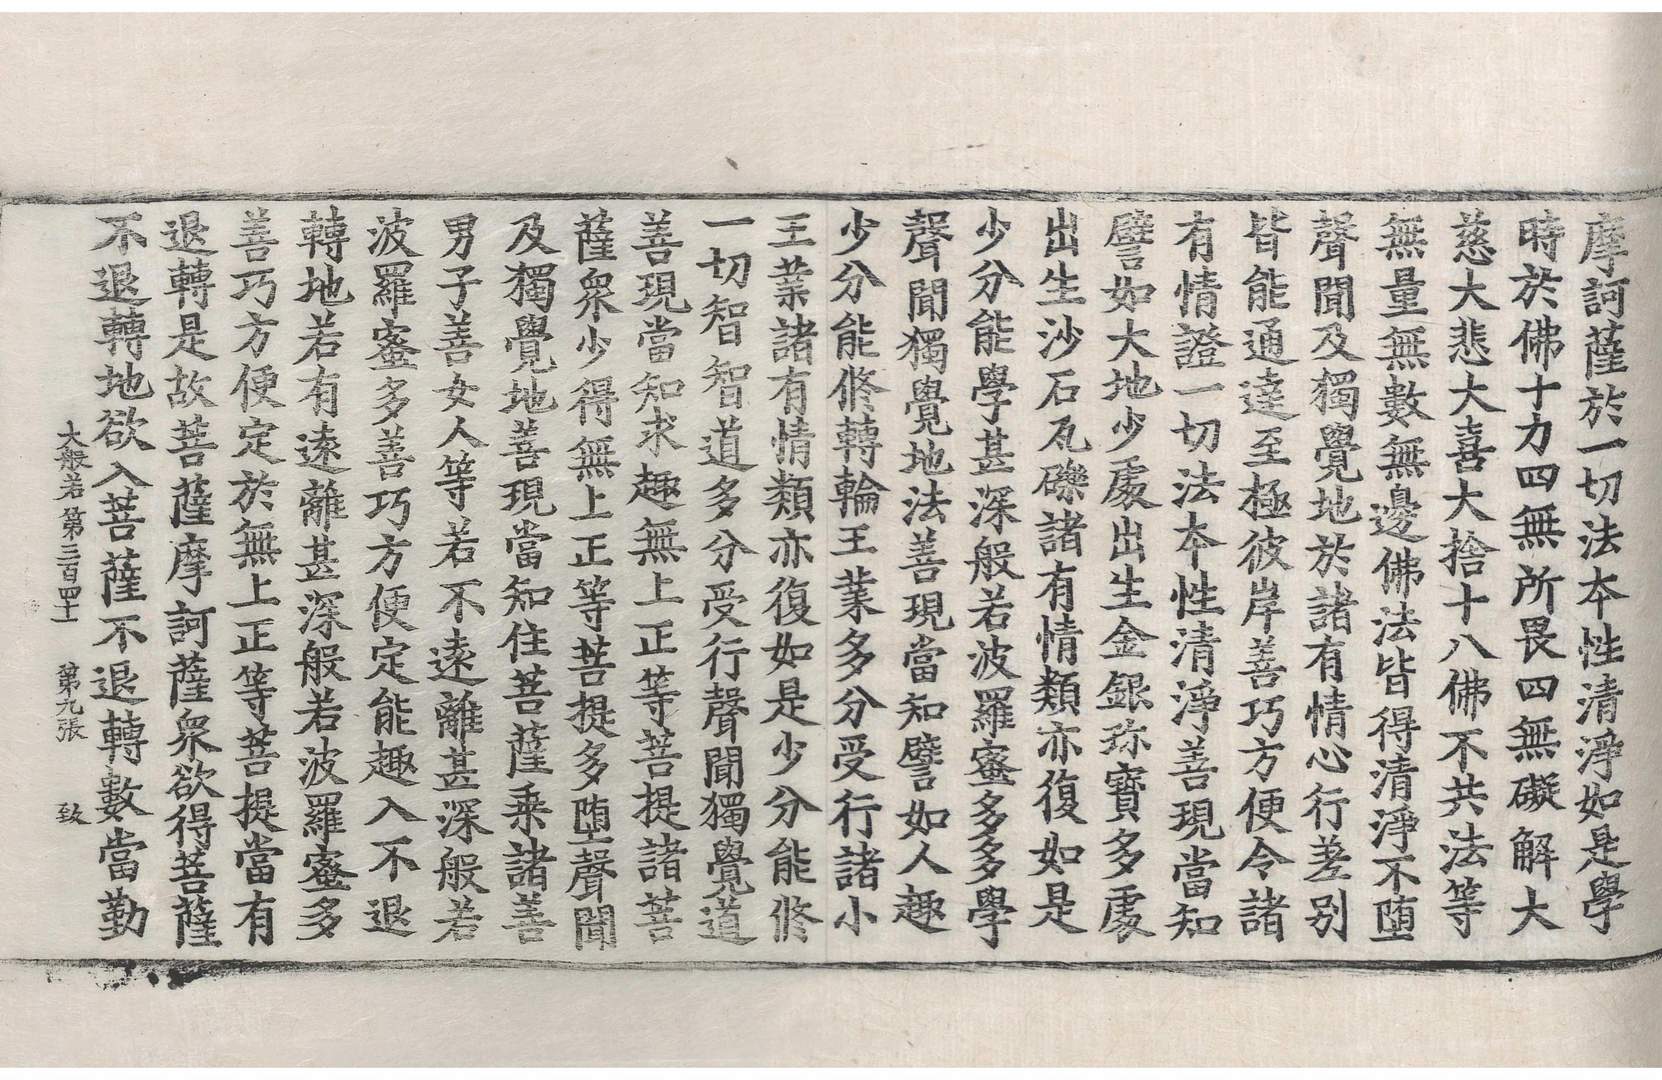 摩訶薩於一切法本性清淨如是學
時於佛十力四無所畏四無礙解大
慈大悲大喜大捨十八佛不共法等
無量無數無邊佛法皆得清淨不墮
聲聞及獨覺地於諸有情心行差別
皆能通達至極彼岸善巧方便令諸
有情證一切法本性清淨善現當知
譬如大地少處出生金銀珎寶多處
出生沙石瓦礫諸有情類亦復如是
少分能學甚深般若波羅蜜多多學
聲聞獨覺地法善現當知譬如人趣
少分能修轉輪王業多分受行諸小
王業諸有情類亦復如是少分能修
一切智智道多分受行聲聞獨覺道
善現當知求趣無上正等菩提諸菩
薩衆少得無上正等菩提多墮聲聞
及獨覺地善現當知住菩薩乘諸善
男子善女人等若不遠離甚深般若
波羅蜜多善巧方便定能趣入不退
轉地若有遠離甚深般若波羅蜜多
善巧方便定於無上正等菩提當有
退轉是故菩薩摩訶薩衆欲得菩薩
不退轉地欲入菩薩不退轉數當勤
大般若第三百四十 第九張 致